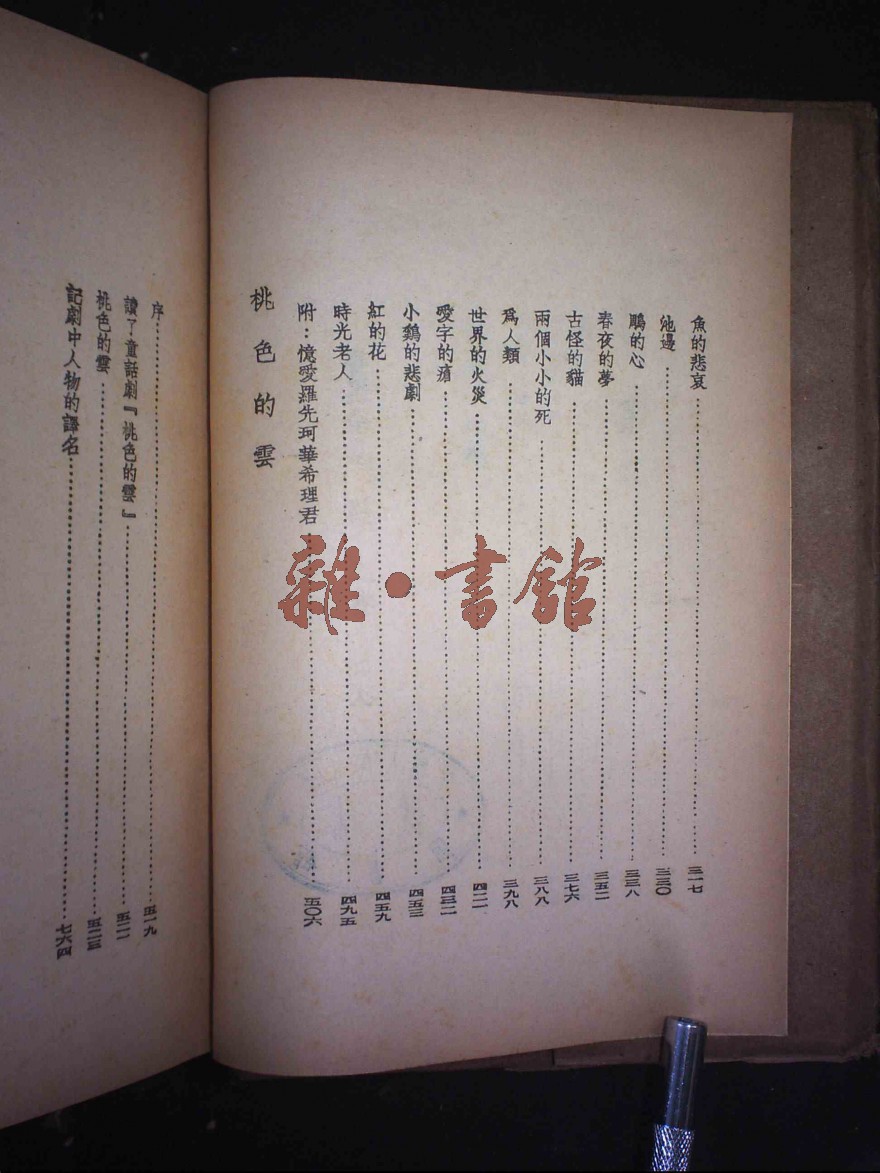 魚的悲哀…………三一七
池邊…………三三〇
鵰的心…………三三八
春夜的夢…………三五二
古怪的貓…………三七六
兩個小小的死…………三八八
爲人類…………三九八
世界的火災…………四二一
愛字的瘡…………四三二
小鷄的悲劇…………四五三
紅的花…………四五九
時光老人…………四九五
附：憶愛羅先珂華希理君…………五〇六
桃色的雲
序…………五一九
讀了童話劇『桃色的雲』…………五二一
桃色的雲…………五二三
記劇中人物的譯名…………七六四
雜·書館